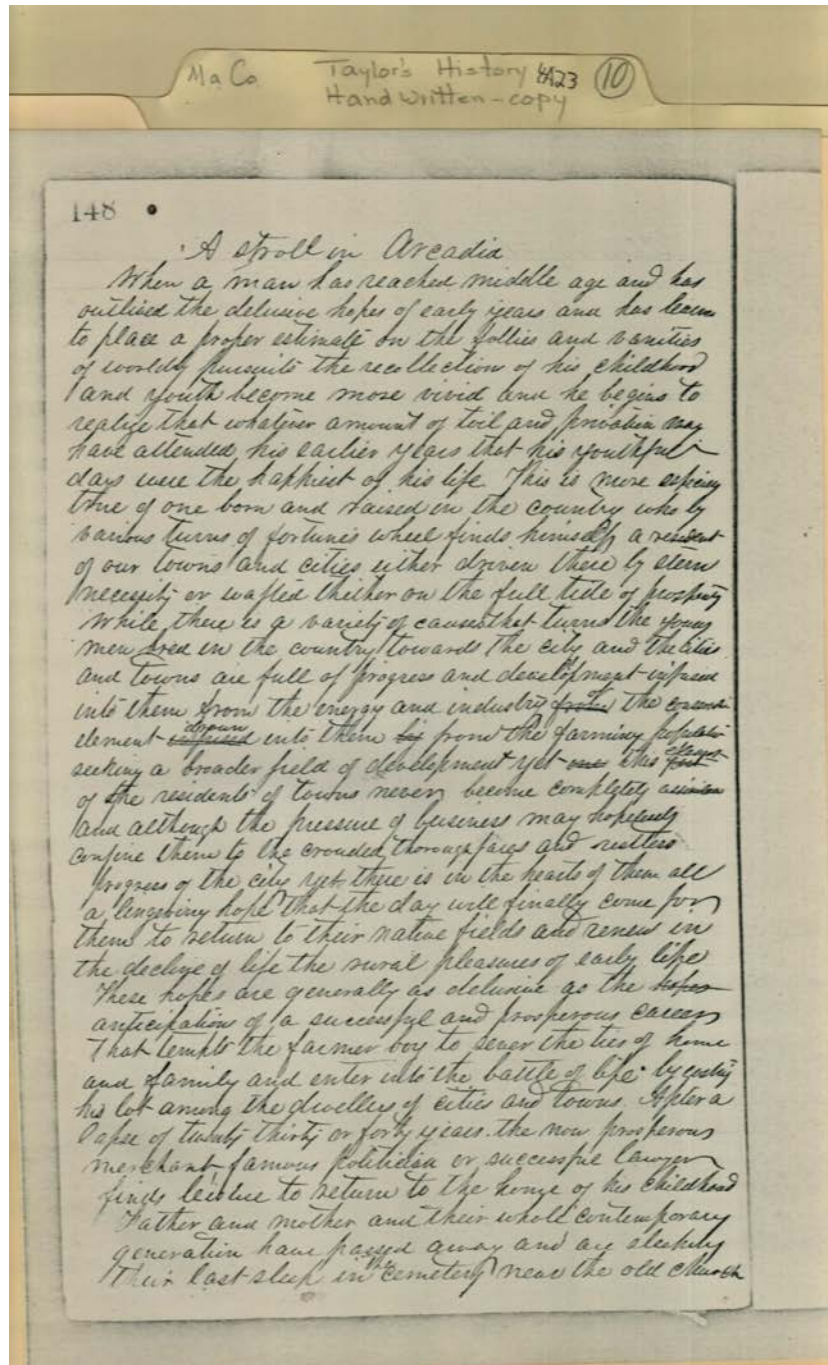 Ma Co Taylor's History 4A23 10
Hand written-copy
148
A stroll in Arcadia
When a man has reached middle age and has
outlised the delusive hopes of early years and has learn
to place a proper estimate on the follies and vanities
of worldy pursuits the recollection of his childhood
and youth become more vivid and he begins to
realize that whatever amount of toil and privation may
have attended his earlier years that his youthful
days were the happiest of his life. This is more
true of one born and raised in the country who by
various turns of fortunes wheel finds himself a resident
of our towns and cities either driven there by stern
necessity or wafted thither on the full tide of prosperity
While there is a variety of causes that turns the young
men bred in the country towards the city and the cities
and towns are full of progress and development infused
into them from the energy and industry from the
element drawn into them by from the farming
seeking a broader field of development yet this
of the residents of towns never become completely
and although the pressure of business may hopelessly
confine them to the crouded thoroughfares and restless
progress of the city yet there is in the hearts of them all
a lingering hope that the day will finally come for
them to return to their native fields and renew in
the decline of life the rural pleasures of early life
These hopes are generally as delusive as the hopes
anticipations of a successful and prosperous career
That tempts the farmer boy to sever the ties of home
and family and enter into the battle of life by casting
his lot among the dwellers of cities and towns. After a
lapse of twenty thirty or forty years. the now prosperous
merchant famous politician or successful lawyer
finds leisure to return to the home of his childhood
Father and mother and their whole contemporary
generation have passed away and are sleeping
their last sleep in the cemetery near the old church